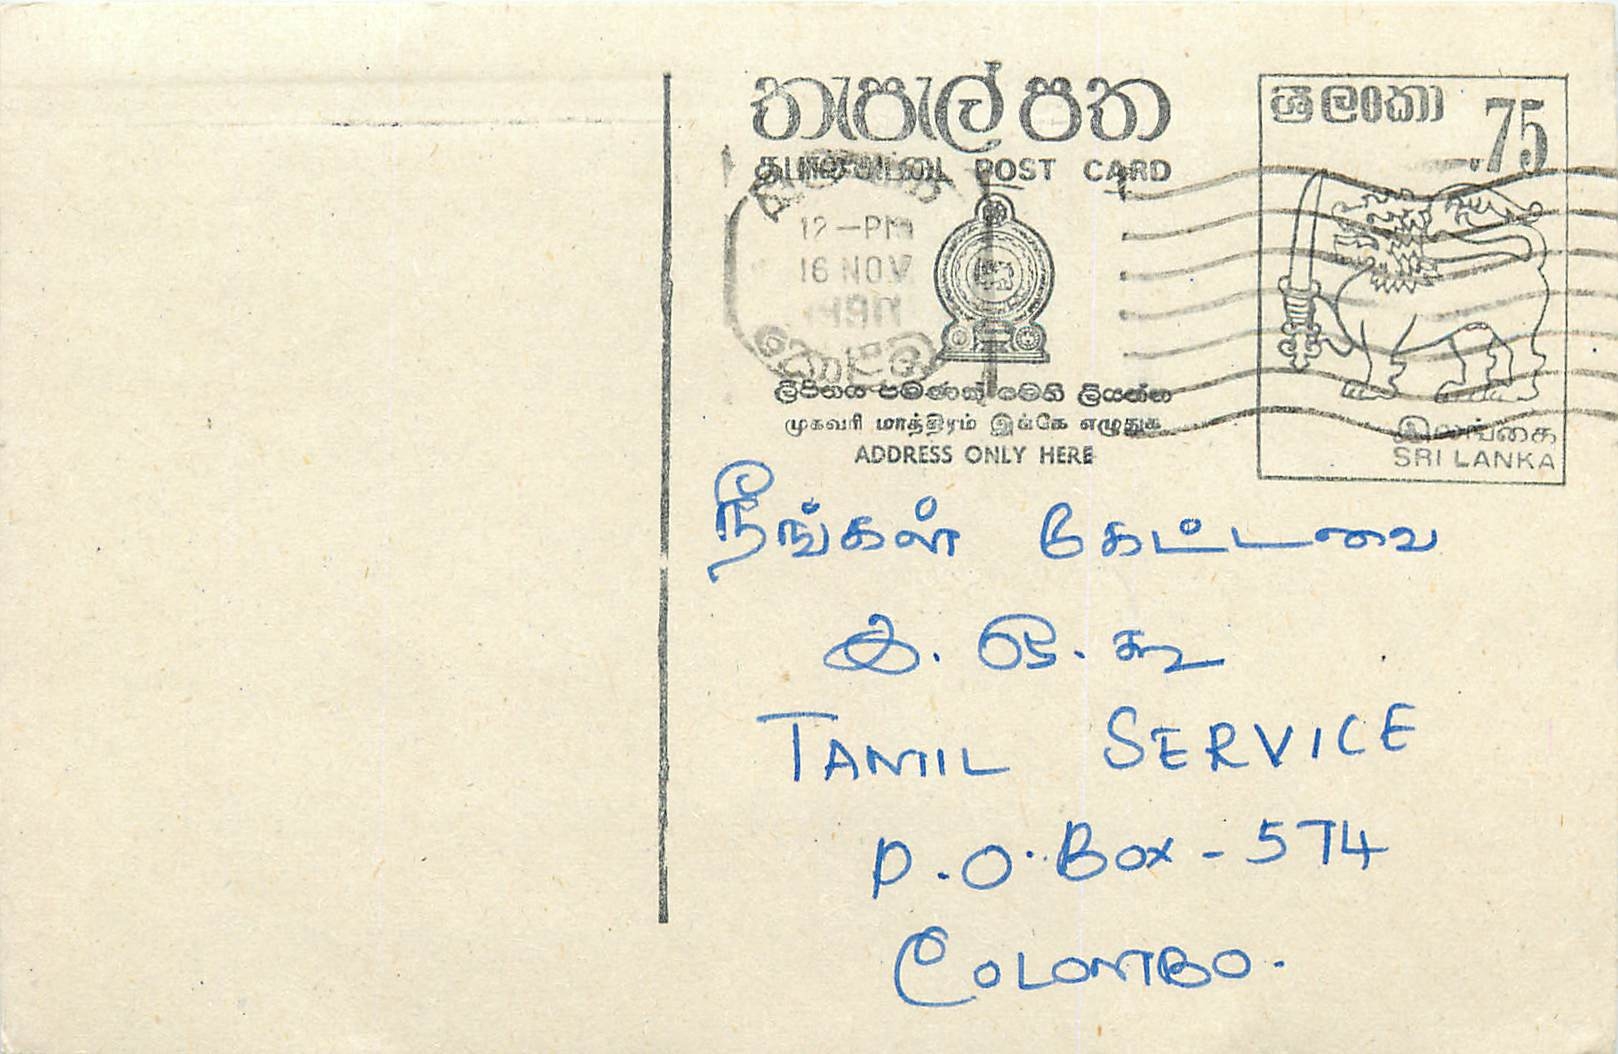 තැපැල් පත
POST CARD
ශ්‍රී ලංකා .75
12-PM
16 NOV
ලිපිනය පමණක් මෙහි ලියන්න
முகவரி மாத்திரம் இங்கே எழுதுக
ADDRESS ONLY HERE
இலங்கை
SRI LANKA
நீங்கள் கேட்டவை
இ. ஒ. கூ
TAMIL SERVICE
P.O. Box - 574
COLOMBO.